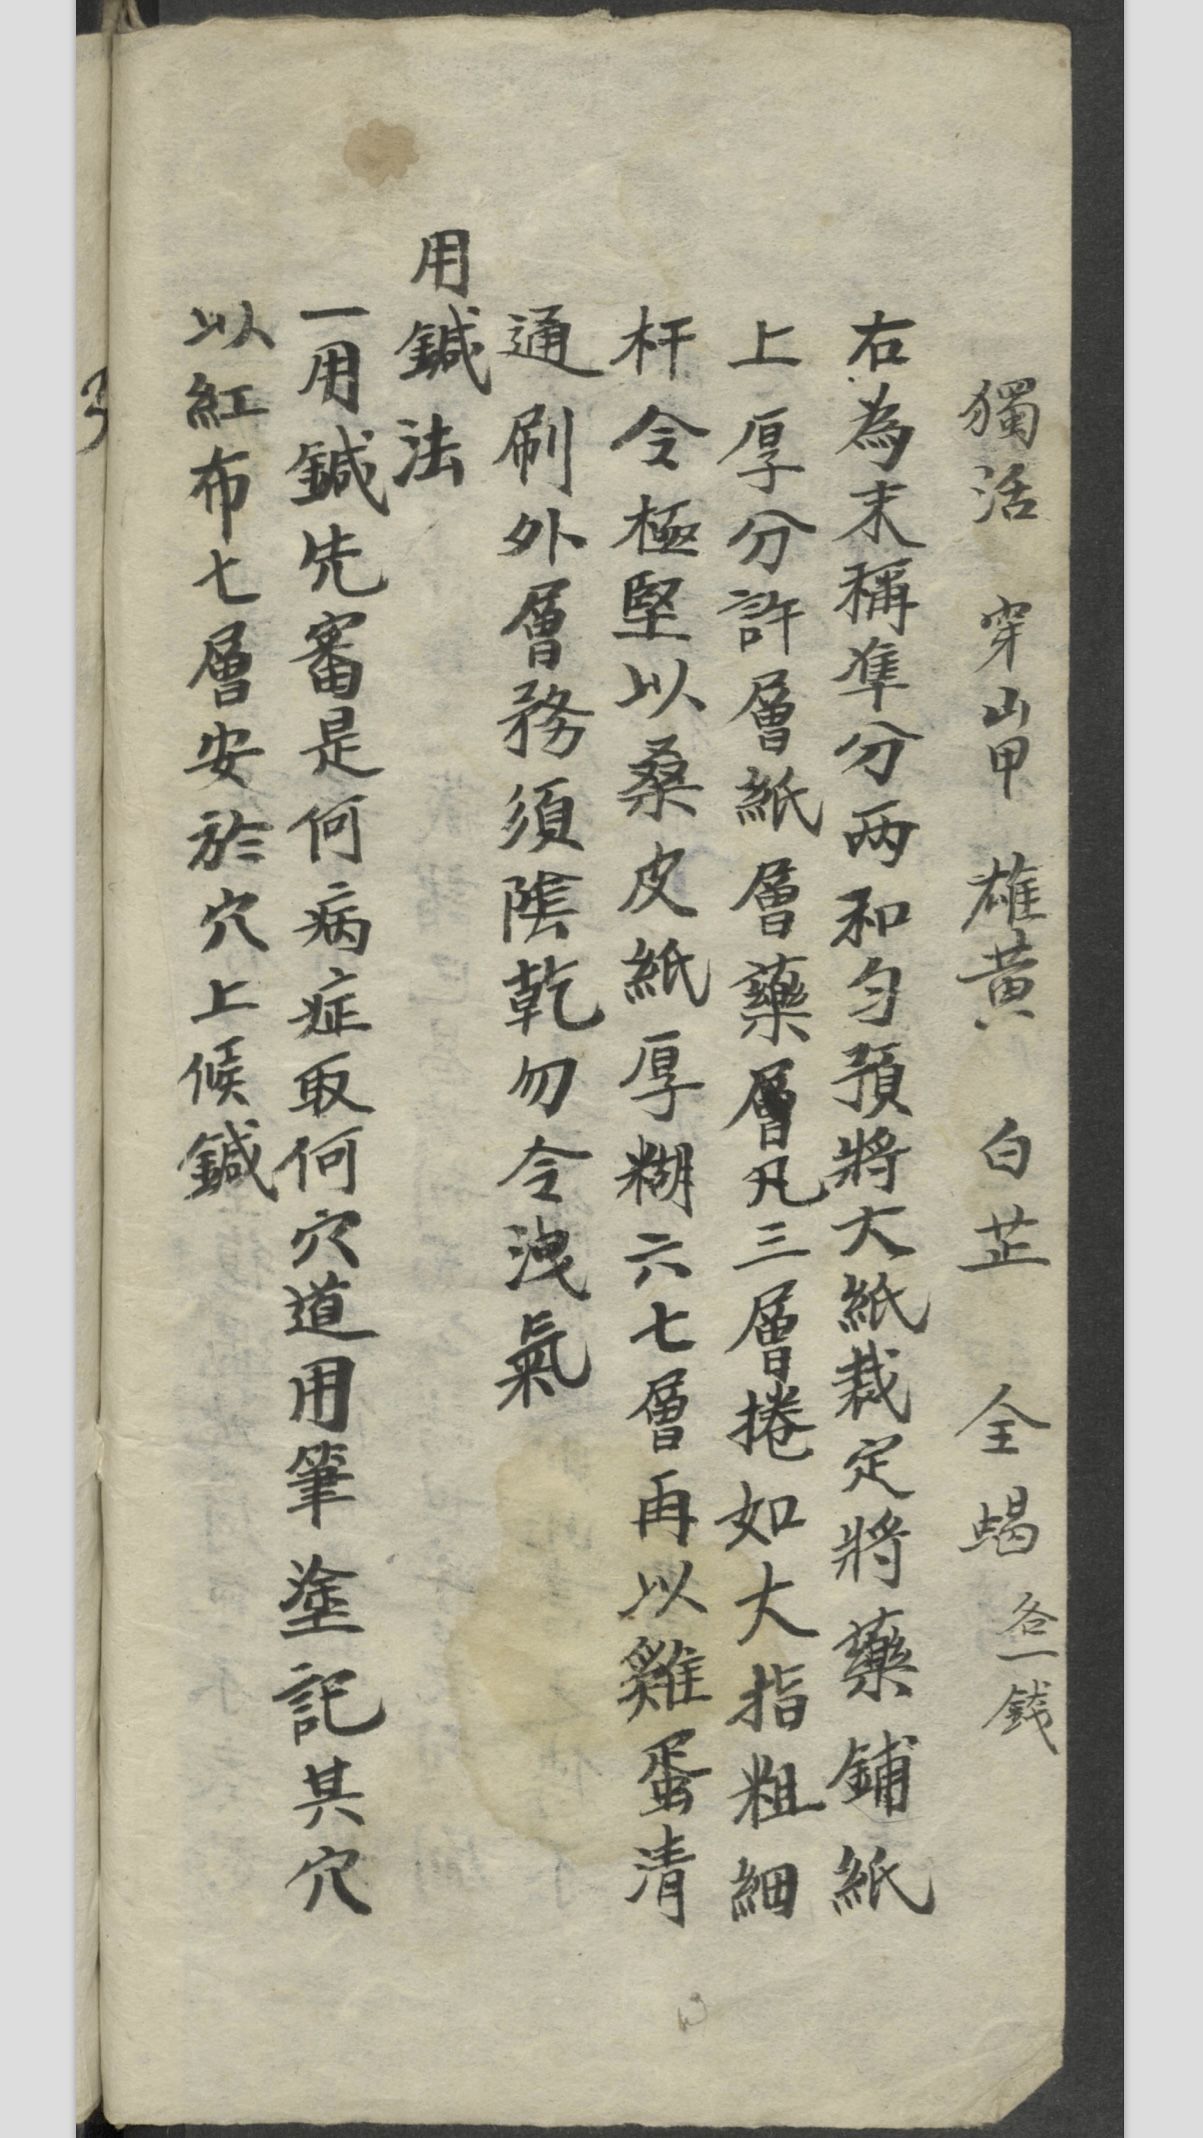 獨活　穿山甲　雄黃　白芷　全蝎　各一錢
右為末稱準分兩和勻預將大紙裁定將藥鋪紙
上厚分許層紙層藥層凡三層捲如大指粗細
杆令極堅以桑皮紙厚糊六七層再以雞蛋清
通刷外層務須陰乾勿令洩氣
用鍼法
一用鍼先審是何病症取何穴道用筆塗記其穴
以紅布七層安於穴上候鍼